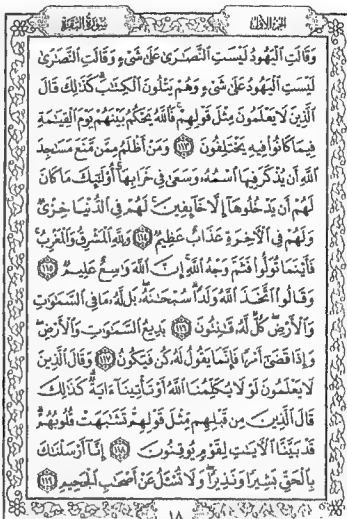 الجزء الأول
سورة البقرة
وَقَالَتِ ٱلْيَهُودُ لَيْسَتِ ٱلنَّصَـٰرَىٰ عَلَىٰ شَىْءٍ وَقَالَتِ ٱلنَّصَـٰرَىٰ
لَيْسَتِ ٱلْيَهُودُ عَلَىٰ شَىْءٍ وَهُمْ يَتْلُونَ ٱلْكِتَـٰبَ ۗ كَذَٰلِكَ قَالَ
ٱلَّذِينَ لَا يَعْلَمُونَ مِثْلَ قَوْلِهِمْ ۚ فَٱللَّهُ يَحْكُمُ بَيْنَهُمْ يَوْمَ ٱلْقِيَـٰمَةِ
فِيمَا كَانُوا۟ فِيهِ يَخْتَلِفُونَ ١١٣ وَمَنْ أَظْلَمُ مِمَّن مَّنَعَ مَسَـٰجِدَ
ٱللَّهِ أَن يُذْكَرَ فِيهَا ٱسْمُهُۥ وَسَعَىٰ فِى خَرَابِهَآ ۚ أُو۟لَـٰٓئِكَ مَا كَانَ
لَهُمْ أَن يَدْخُلُوهَآ إِلَّا خَآئِفِينَ ۚ لَهُمْ فِى ٱلدُّنْيَا خِزْىٌ
وَلَهُمْ فِى ٱلْـَٔاخِرَةِ عَذَابٌ عَظِيمٌ ١١٤ وَلِلَّهِ ٱلْمَشْرِقُ وَٱلْمَغْرِبُ ۚ
فَأَيْنَمَا تُوَلُّوا۟ فَثَمَّ وَجْهُ ٱللَّهِ ۚ إِنَّ ٱللَّهَ وَٰسِعٌ عَلِيمٌ ١١٥
وَقَالُوا۟ ٱتَّخَذَ ٱللَّهُ وَلَدًا ۗ سُبْحَـٰنَهُۥ ۖ بَل لَّهُۥ مَا فِى ٱلسَّمَـٰوَٰتِ
وَٱلْأَرْضِ ۖ كُلٌّ لَّهُۥ قَـٰنِتُونَ ١١٦ بَدِيعُ ٱلسَّمَـٰوَٰتِ وَٱلْأَرْضِ ۖ
وَإِذَا قَضَىٰٓ أَمْرًا فَإِنَّمَا يَقُولُ لَهُۥ كُن فَيَكُونُ ١١٧ وَقَالَ ٱلَّذِينَ
لَا يَعْلَمُونَ لَوْلَا يُكَلِّمُنَا ٱللَّهُ أَوْ تَأْتِينَآ ءَايَةٌ ۗ كَذَٰلِكَ
قَالَ ٱلَّذِينَ مِن قَبْلِهِم مِّثْلَ قَوْلِهِمْ ۘ تَشَـٰبَهَتْ قُلُوبُهُمْ ۗ
قَدْ بَيَّنَّا ٱلْـَٔايَـٰتِ لِقَوْمٍ يُوقِنُونَ ١١٨ إِنَّآ أَرْسَلْنَـٰكَ
بِٱلْحَقِّ بَشِيرًا وَنَذِيرًا ۖ وَلَا تُسْـَٔلُ عَنْ أَصْحَـٰبِ ٱلْجَحِيمِ ١١٩
١٨